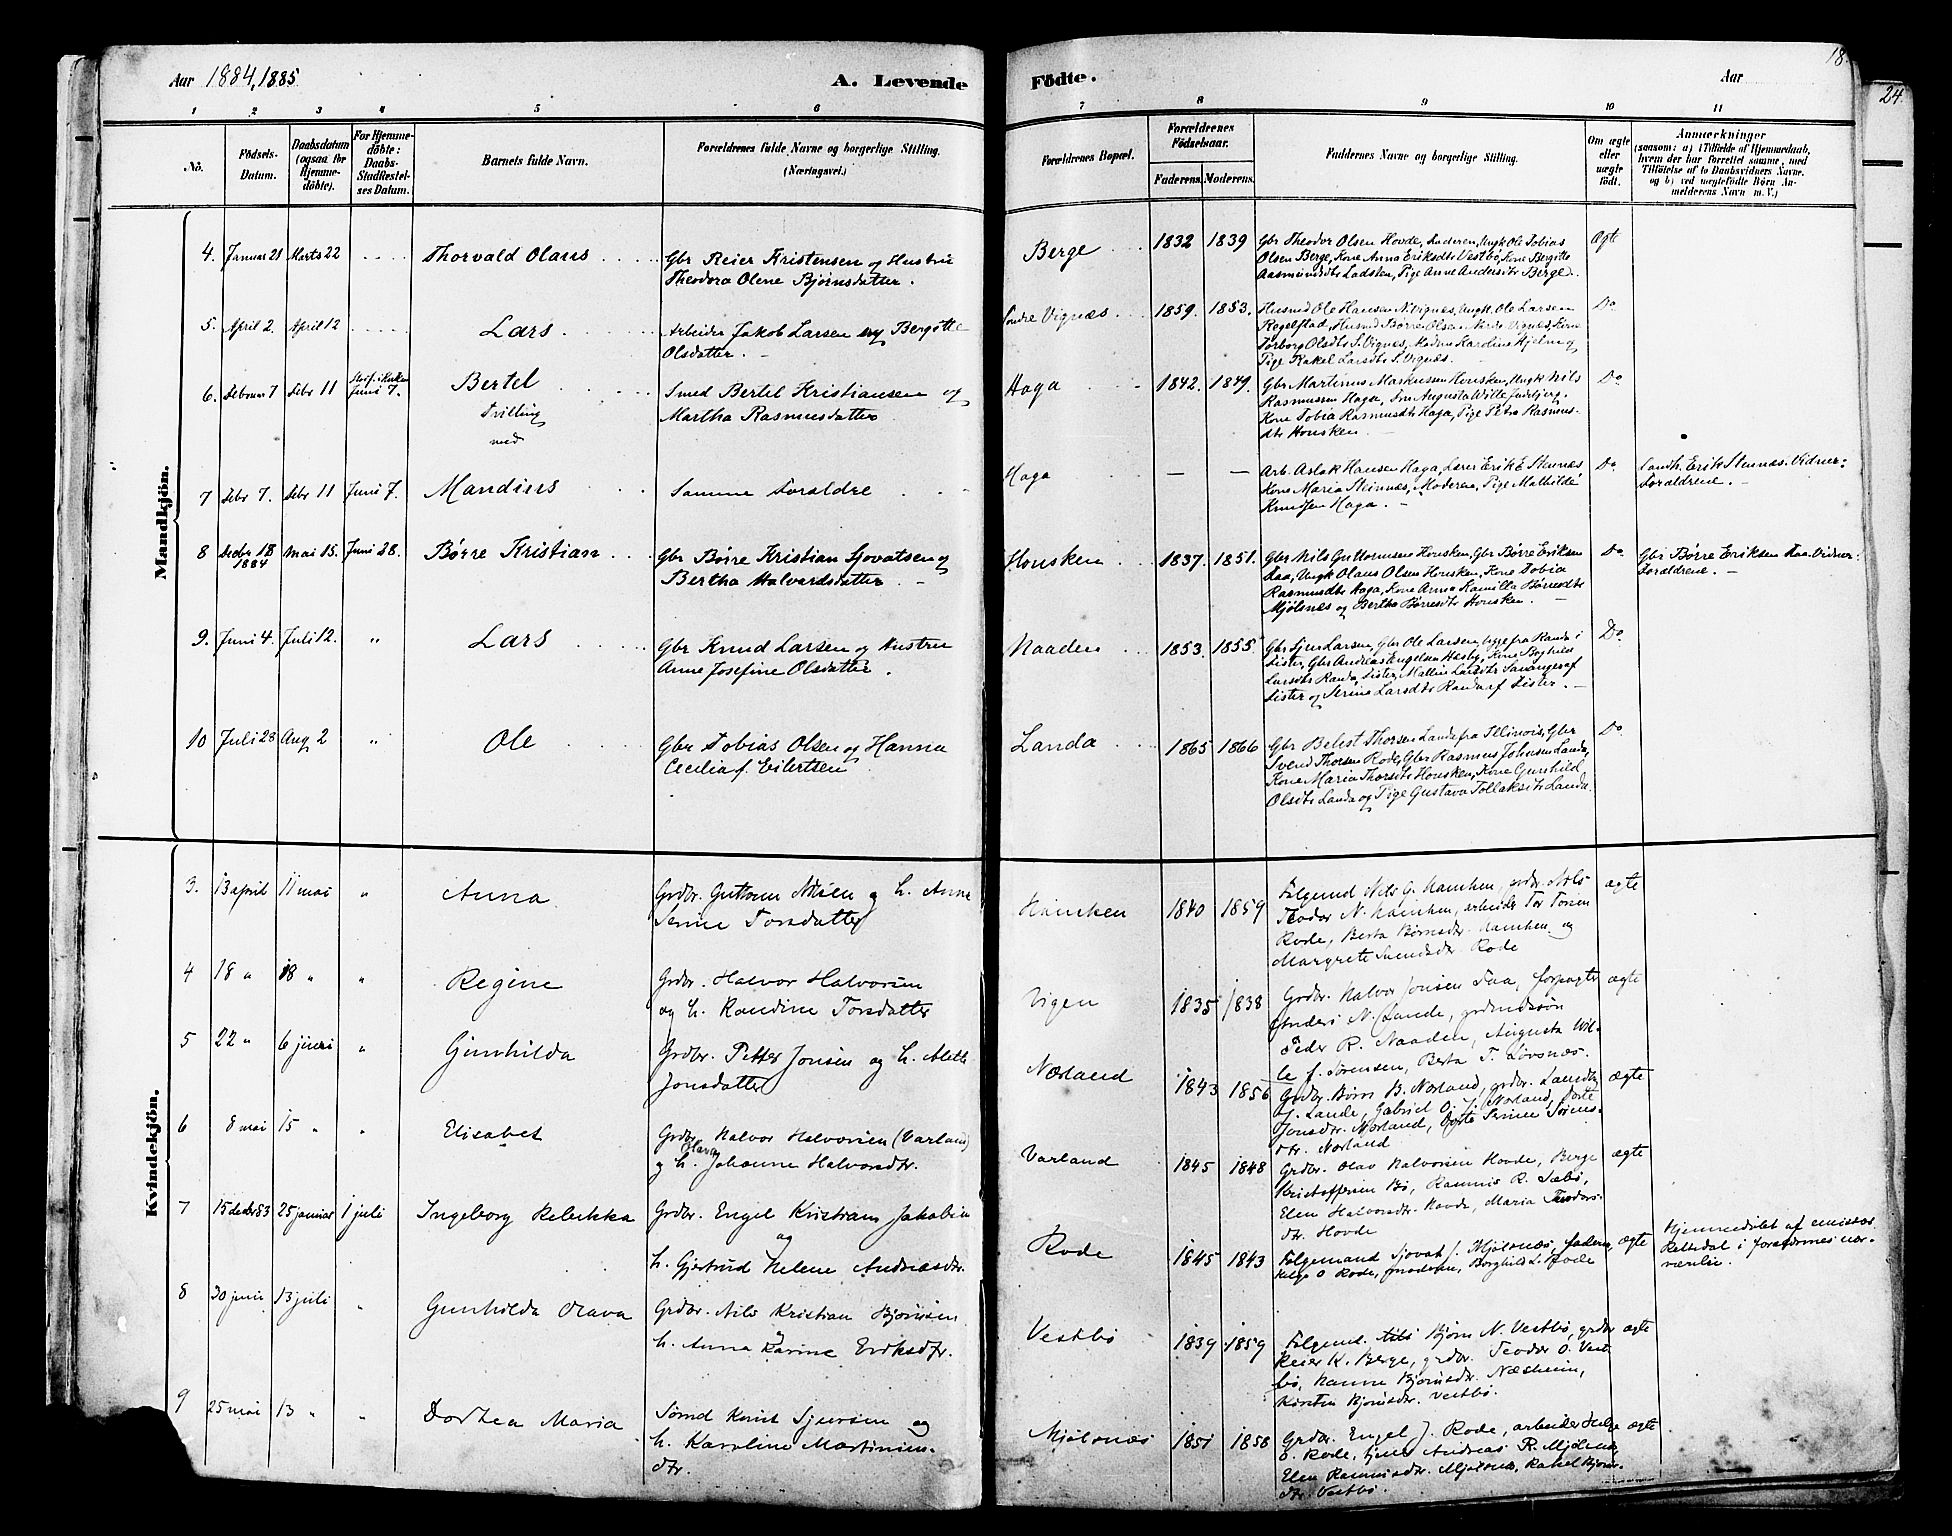 Aar 1884, 1885
A. Levende Födte.
Aar
18
24
1 2 3 4 5 6 7 8 9 10 11
No.
Födsels-Datum.
Daabsdatum (ogsaa for Hjemmedöbte).
For Hjemmedöbte: Daabs-Stadfæstelses Datum.
Barnets fulde Navn.
Forældrenes fulde Navne og borgerlige Stilling. (Næringsvei.)
Forældrenes Bopæl.
Forældrenes Födselsaar.
Faderens. Moderens.
Faddernes Navne og borgerlige Stilling.
Om ægte eller uægte födt.
Anmærkninger
(saasom: a) i Tilfælde af Hjemmedaab,
hvem der har forrettet samme, med
Tilföielse af to Daabsvidners Navne,
og b) ved uægtefödte Börn An-
melderens Navn m. V.)
Mandkjön.
4. Januar 28 Marts 22 Thorvald Olaus
Gbr Reier Kristensen og Hustru
Theodora Olene Bjørnsdatter.
Berge 1832 1839
Gbr Theodor Olsen Hovde, Faderen, Ungk Ole Tobias
Olsen Berge, Kone Anna Eriksdtr Vestbø, Kone Bergitte
Aasmundsdtr Ladsten, Pige Anne Andersdtr Berge.
Ægte
5. April 2. April 12 Lars
Arbeider Jakob Larsen og Bergitte
Olsdatter.
Søndre Vignæs 1859. 1853.
Husmd Ole Hansen N. Vignæs, Ungk. Ole Larsen
Rogelstad, Husmd Børre Olsen Nerdre Vignæs, Kone
Torborg Olsdtr S. Vignes, Madm Karoline Hjelm og
Pige Rakel Larsdtr S. Vignæs.
Do
6. Februar 7 Febr 11 Juni 7. Bertel
Trilling
med
Smed Bertel Kristiansen og
Martha Rasmusdatter
Haga 1842. 1849.
Gbr Martinus Markussen Housken, Ungk Nils
Rasmussen Haga, Augusta Wille Judebjerg.
Kone Tobia Rasmusdtr Haga, Pige Petra Rasmus-
dtr Housken.
Do
7 Febr 7. Febr 11 Juni 7. Mandius
Samme Forældre
Haga — —
Arb. Aslak Hansen Haga, Lærer Erik E Stennæs
Kone Maria Steinnæs, Moderen, Pige Mathilde
Knudsen Haga.
Do
Landh. Erik Stennæs. Vidner:
Forældrene.
8 Decbr 18 1884 Mai 15. Juni 28. Børre Kristian
Gbr Børre Kristian Sjovatsen og
Bertha Halvardsdatter
Housken 1837. 1851.
Gbr Nils Guttormsen Housken, Gbr Børre Eriksen
Faa, Ungk Olaus Olsen Housken, Kone Tobia
Rasmusdtr Haga, Kone Anna Kamilla Børresdtr
Mjølsnes og Bertha Børresdtr Housken.
Do
Gbr Børre Eriksen Faa. Vidner:
Forældrene.
9. Juni 4. Juli 12. " Lars
Gbr Knud Larsen og Hustru
Anne Josefine Olsdatter.
Naaden 1853. 1855
Gbr Sjur Larsen, Gbr Ole Larsen, begge fra Randa i
Fister, Gbr Andreas Engelsen Hesby, Kone Boghild
Larsdtr Randa, Fister, Malline Larsdtr Savanger af
Fister og Serine Larsdtr Randa af Fister.
Do
10 Juli 28 Aug 2 " Ole
Gbr Tobias Olsen og Hanna
Cecilia f. Eilertsen
Landa 1865 1866
Gbr Belest Thorsen Lande fra Illinois, Gbr
Svend Thorsen Rode, Gbr Rasmus Johnsen Landa,
Kone Maria Thorsdtr Housken, Kone Gunhild
Olsdtr Landa og Pige Gustava Tollaksdtr Landa.
Do
Kvindekjön.
3. 13 april 11 mai " Anna
Grdbr. Guttorm Nilsen og h. Anna
Serine Torsdatter
Hausken 1840 1859
Følgemd Nils G. Hausken, grdbr. Nils
Teodor N. Hausken, arbeider Tor Torsen
Rode, Berta Børresdtr. Hausken og
Margrete Svendsdtr. Rode
ægte
4 18 " 18 " " Regine
Grdbr. Halvor Halvorsen
og h. Randine Torsdatter
Vigen 1835 1838
Grdbr. Halvor Jonsen Faa, forpagter
Anders N. Lande, grdmdssøn
Peder R. Naaden, Augusta Wil-
le f. Sørensen, Berta T. Løvsnæs.
ægte
5 22 " 6 juni " Gunhilda
Grdbr. Petter Jonsen og h. Alette
Jonsdatter
Nærland 1843 1856
Grdbr. Børre B. Norland, grdbr. Laurits
J. Lande, Gabriel O. J. Norland, Dorte
Jonsdtr. Norland, Dorte Serine Sørens-
dtr. Norland
ægte
6 8 mai 15 " " Elisabet
Grdbr. Halvor Halvorsen (Varland)
og h. Olava Johanne Halvorsdtr.
Varland 1845 1848
Grdbr. Olav Halvorsen Hovde, Berge
Kristoffersen Bø, Rasmus R. Sæbø,
Elen Halvorsdtr. Hovde, Maria Teodors-
dtr. Hovde
ægte
7 15 decbr 83 25 januar 1 juli Ingeborg Rebekka
Grdbr. Engel Kristian Jakobsen
og
h. Gjertrud Helene Andreasdtr.
Rode 1845 1843
Følgemand Sjovat J. Mjølsnæs, faderen,
Helge O Rode, moderen, Borghild L. Rode
ægte
Hjemmedøbt af emissær
Rettedal i forældrenes nær-
værelse.
8 30 juni 13 juli " Gunhilda Olava
Grdbr. Nils Kristian Bjørnsen
og
h. Anna Karine Eriksdtr.
Vestbø 1839 1859
Følgemd. Bjørn N. Vestbø, grdbr
Reier K. Berge, grdbr. Teodor O. Vest
bø, Hanne Bjørnsdtr. Næsheim,
Kirsten Bjørnsdtr. Vestbø.
ægte
9 25 mai 13 " " Dortea Maria
Smed Knut Sjursen og
h. Karoline Martinius-
dtr.
Mjølsnæs 1851 1858
Grdbr. Engel J. Rode, arbeider Helge
O. Rode, tjener Andreas R. Mjølsnæs,
Elen Rasmusdtr. Mjølsnæs, Rakel Bjørns-
dtr. Vestbø
ægte